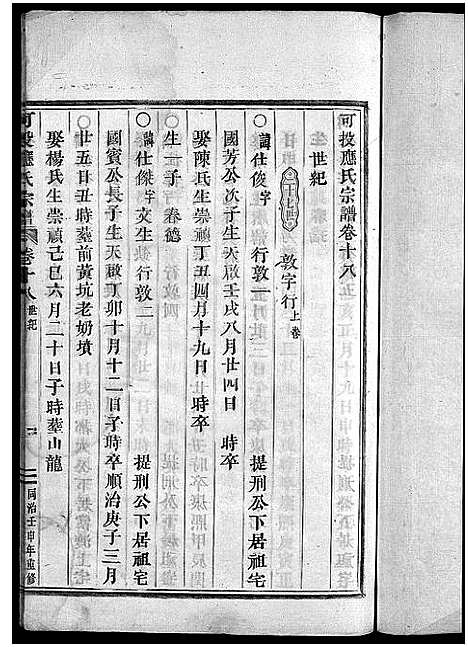 可投應氏宗譜卷十八
世紀
十七世 敦字行 上卷
○諱仕俊字 行敦一 提刑公下居祖宅
國芳公次子生天啟壬戌八月廿四日 時卒
娶陳氏生崇禎丁丑四月十九日 時卒
生一子 春德
○諱仕傑字文生 行敦二 提刑公下居祖宅
國賓公長子生天啟丁卯十月十二日子時卒順治庚子三月
廿五日丑時塟前黃坑老奶墳
娶楊氏生崇禎己巳六月二十日子時塟山龍
可投應氏宗譜 卷十八 世紀 一 同治壬申年重修